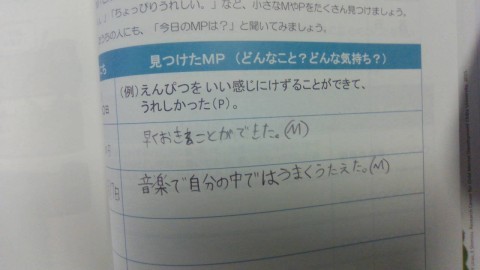 「ちょっぴりうれしい。」など、小さなMやPをたくさん見つけましょう。
の人にも、「今日のMPは？」と聞いてみましょう。
見つけたMP（どんなこと？どんな気持ち？）
(例)えんぴつを いい感じにけずることができて、
うれしかった(P)。
早くおきることができた。(M)
音楽で自分の中ではうまくうたえた。(M)